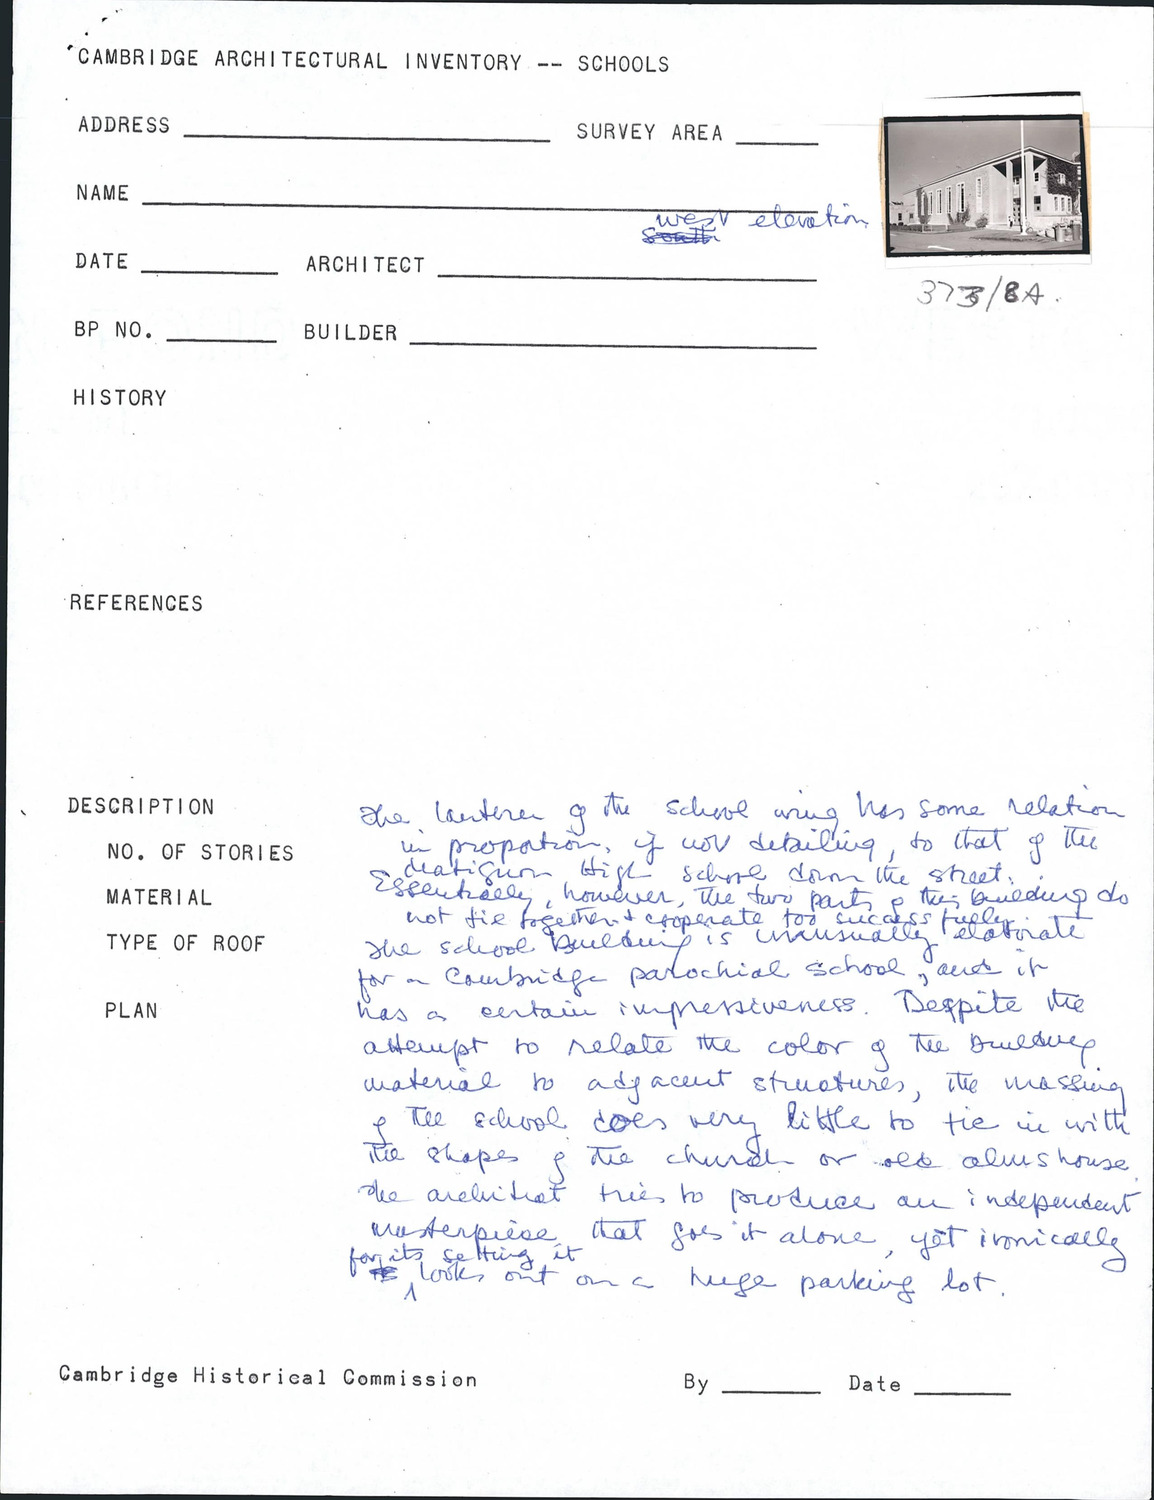 CAMBRIDGE ARCHITECTURAL INVENTORY -- SCHOOLS
ADDRESS SURVEY AREA
NAME
west elevation
South
DATE ARCHITECT
373/8A.
BP NO. BUILDER
HISTORY
REFERENCES
DESCRIPTION
NO. OF STORIES
MATERIAL
TYPE OF ROOF
PLAN
The lantern of the school wing has some relation
in proportion, if not detailing, to that of the
Matignon High School down the street.
Essentially, however, the two parts of this building do
not tie together & cooperate too successfully.
The school building is unusually elaborate
for a Cambridge parochial school, and it
has a certain impressiveness. Despite the
attempt to relate the color of the building
material to adjacent structures, the massing
of the school does very little to tie in with
the shapes of the church or old almshouse.
The architect tries to produce an independent
masterpiece that goes it alone, yet ironically
for its setting it
looks out on a huge parking lot.
Cambridge Historical Commission By Date